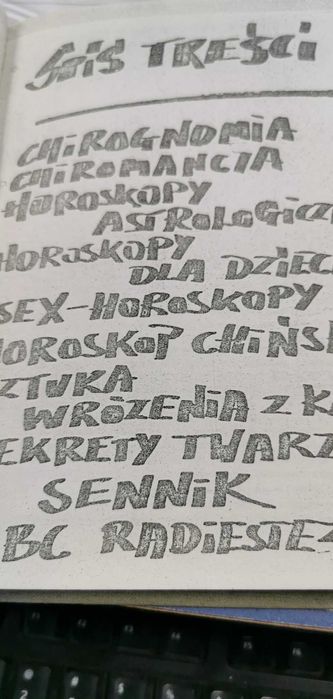 SPiS TREŚCi
CHiROGNOMiA
CHiROMANCJA
HOROSKOPY
ASTROLOGiCZ
HOROSKOPY
DLA DZiEC
SEX-HOROSKOPY
HOROSKOP CHiŃSK
ZTUKA
WRÓŻENiA Z K
EKRETY TWARZ
SENNiK
BC RADiESTE